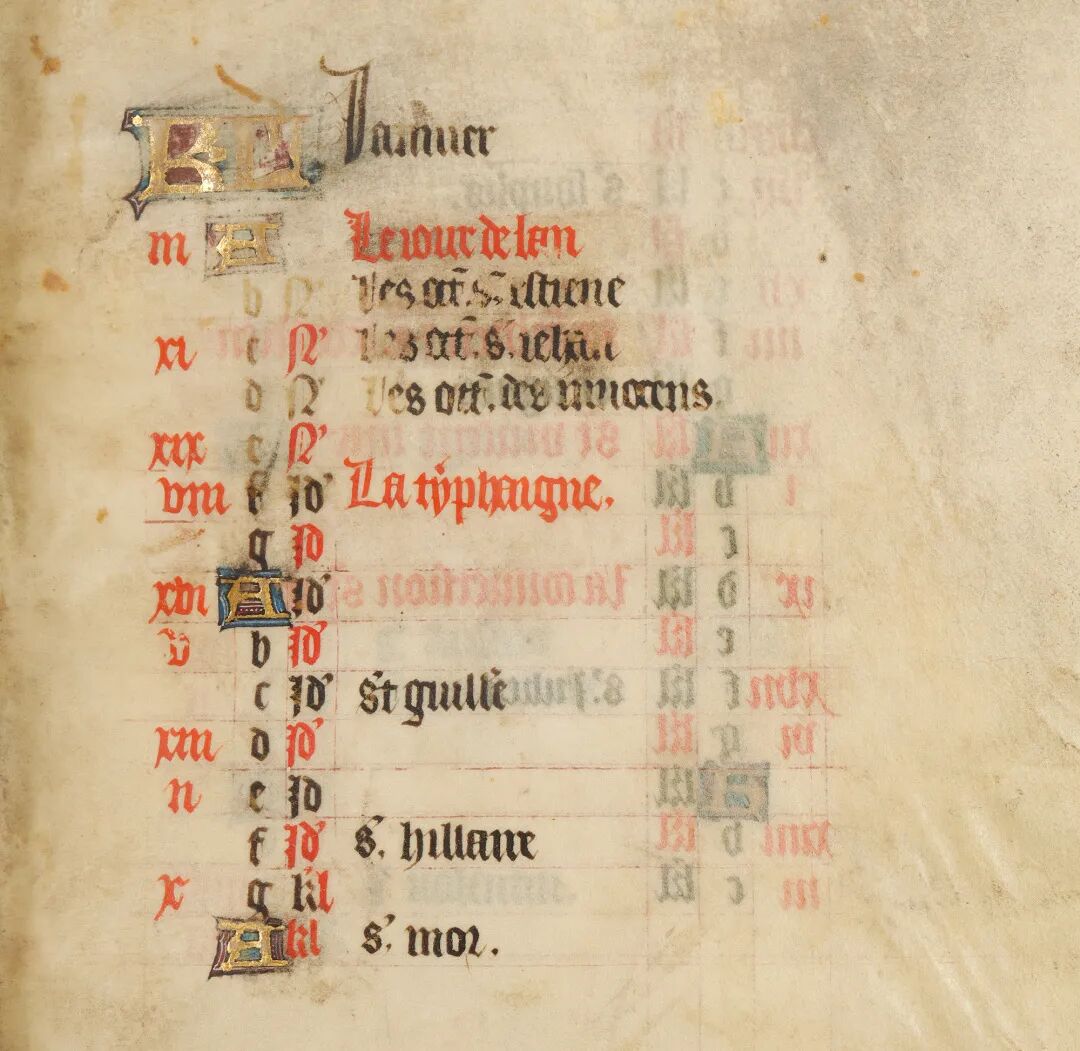 KL Januier
iii A Le iour de lan
b N' Les oct. s. estiene
xi c N' Les oct. s. iehan
d N' Les oct. des innocens
xix e N'
viii f Id' La typhaigne.
g Id
xvi A Id'
v b Id'
c Id' St guille
xiii d Id'
ii e Id
f Id' s'. hillaire
x g kl
A kl s'. mor.